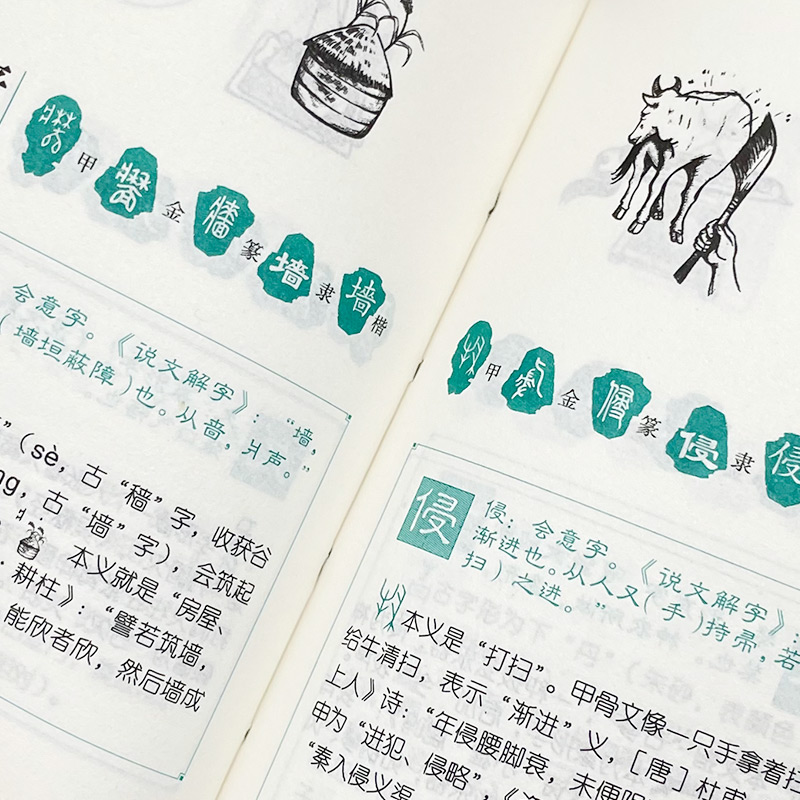 甲 金 篆 墙 隶 墙 楷
会意字。《说文解字》：“墙，
（墙垣蔽障）也。从啬，爿声。”
”（sè，古“穑”字，收获谷
古“墙”字），会筑起
本义就是“房屋、
耕柱》：“譬若筑墙，
能欣者欣，然后墙成
甲 金 篆 侵 隶 侵
侵
侵：会意字。《说文解字》：
渐进也。从人又（手）持帚，若
扫）之进。”
本义是“打扫”。甲骨文像一只手拿着扫
给牛清扫，表示“渐进”义，［唐］杜甫
上人》诗：“年侵腰脚衰，未便阴
申为“进犯、侵略”，《
“秦入侵义渠